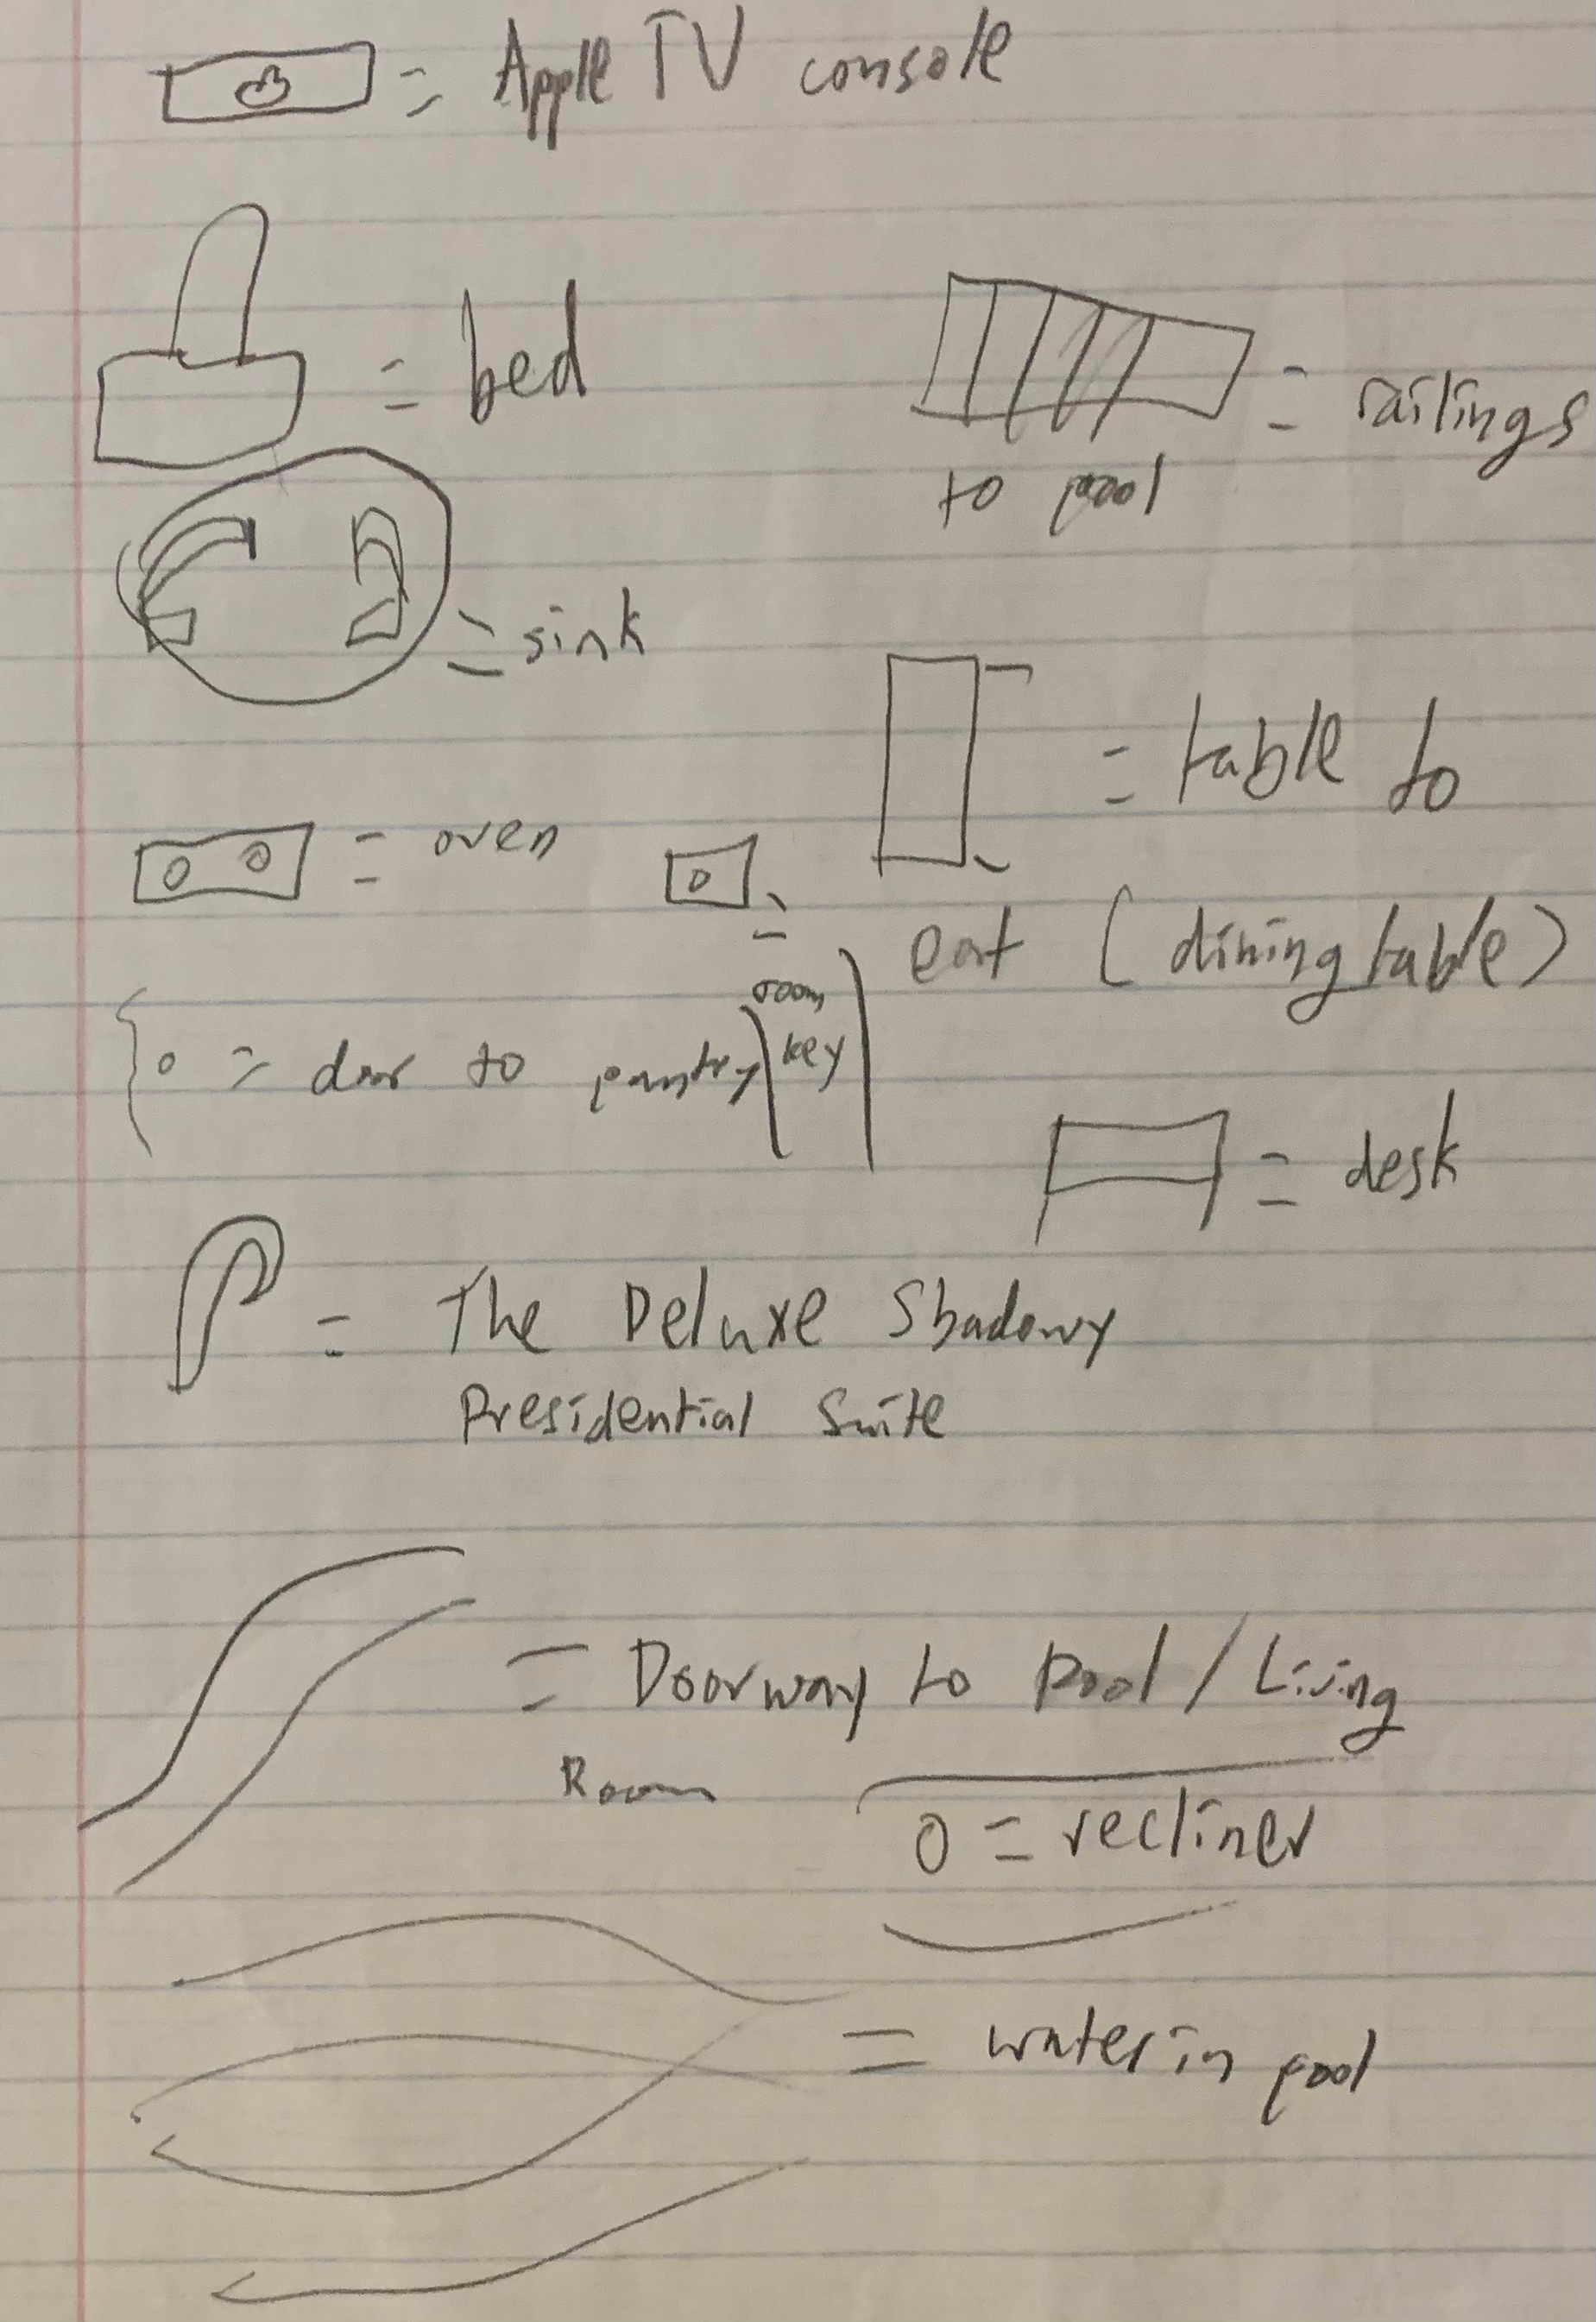 = Apple TV console
= bed
= railings
to pool
= sink
= table to
eat (dining table)
= oven
= room
key
= door to pantry
= desk
= The Deluxe Shadowy
Presidential Suite
= Doorway to Pool / Living
Room
0 = recliner
= water in pool